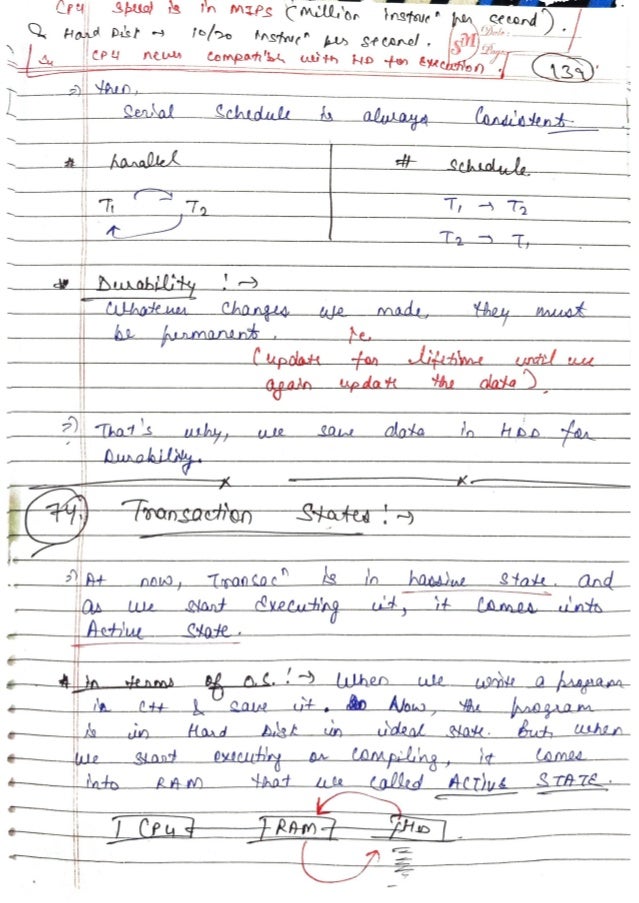 CPU speed is in MIPS (Million Instrucⁿ per second).
& Hard Disk → 10/20 Instrucⁿ per second.
So CPU never compatible with HD for execution.
139
⇒ then,
Serial Schedule is always Consistent.
# Parallel
T₁ T₂
# Schedule
T₁ → T₂
T₂ → T₁
* Durability !→
Whatever changes we made, they must
be permanent. i.e.
(update for lifetime until we
again update the data).
⇒ That's why, we save data in HDD for
Durability.
74. Transaction States !→
⇒ At now, Transacⁿ is in passive state. and
as we start executing it, it comes into
Active State.
# In terms of O.S. !→ When we write a program
in C++ & save it. Now, the program
is in Hard Disk in ideal state. But, when
we start executing or compiling, it comes
into RAM that we called ACTIVE STATE.
CPU RAM HD